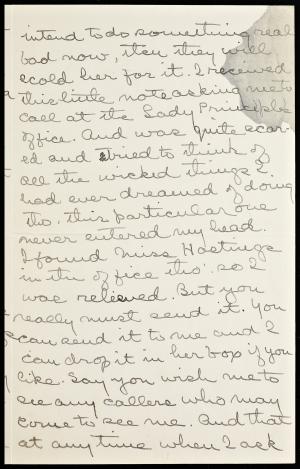 intend to do something real
bad now, iten they will
scold her for it. I received
this little note asking me to
call at the Lady Principle
office. And was quite scar-
ed and tried to think of
all the wicked things I
had ever dreamed of doing
tho, this particular one
never entered my head.
I found Miss Hastings
in the office tho' so I
was relieved. But you
really must send it. You
can send it to me and I
can drop it in her box if you
like. Say you wish me to
see any callers who may
come to see me. And that
at any time when I ask